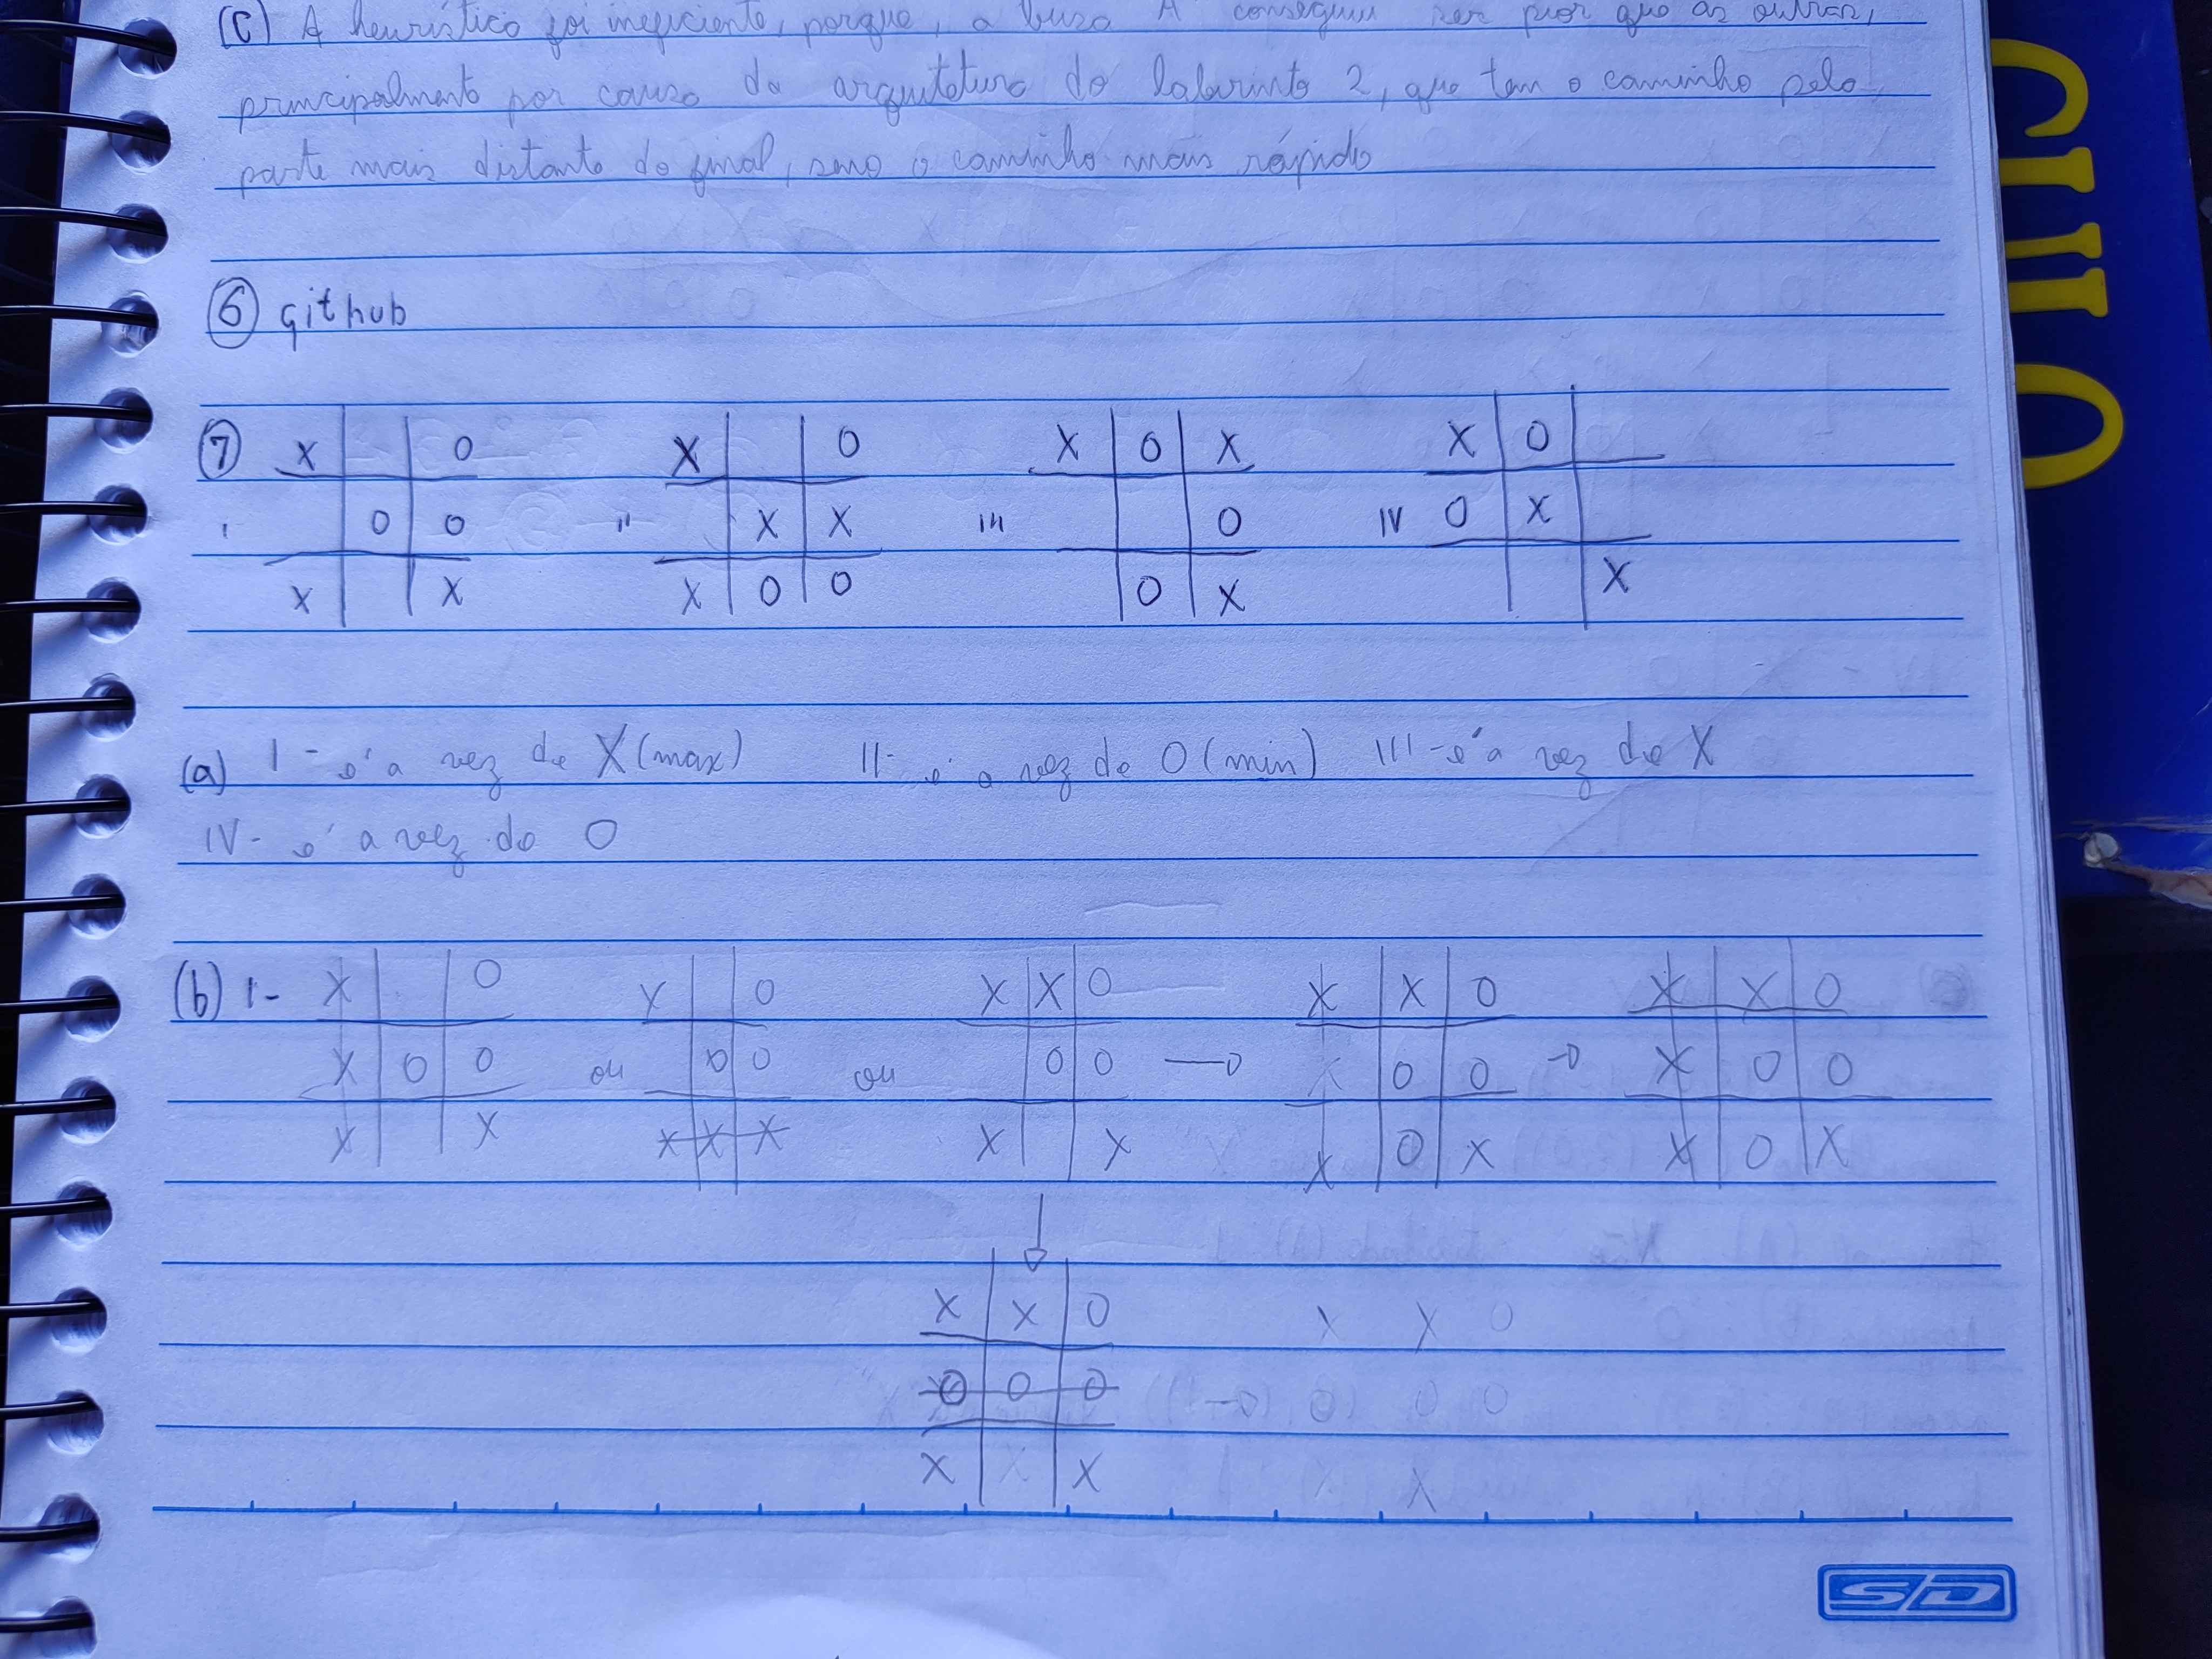 (c) A heurística foi ineficiente, porque, a busca A conseguiu ser pior que as outras,
principalmente por causa da arquitetura do labirinto 2, que tem o caminho pela
parte mais distante do final, sendo o caminho mais rápido
6 github
7 X O X O X O X X O
I O O II X X III O IV O X
X X X O O O X X
(a) I - é a vez de X (max) II - é a vez de O (min) III - é a vez de X
IV - é a vez de O
(b) 1- X O X O X X O X X O X X O
X O O ou O O ou O O → X O O → X O O
X X X X X X X X O X X O X
X X O
O O O
X X
SD
CIIIO